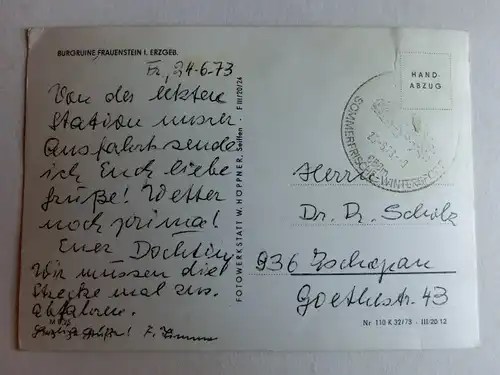 BURGRUINE FRAUENSTEIN I. ERZGEB.
24-6-73
Von der letzten
Station unsrer
Ausfahrt sende
ich Euch liebe
Grüße! Wetter
noch prima!
Euer
Wir müssen die
Strecke mal zus.
abfahren.
Herzliche Grüße!
M 0,25
FOTOWERKSTATT W. HOPPNER, Seiffen F III/20/24
HAND-
ABZUG
SOMMERFRISCHE WINTERSPORT
Herrn
Dr. D. Scholz
936 Zschopau
Goethestr. 43
Nr 110 K 32/73 - III/20 12